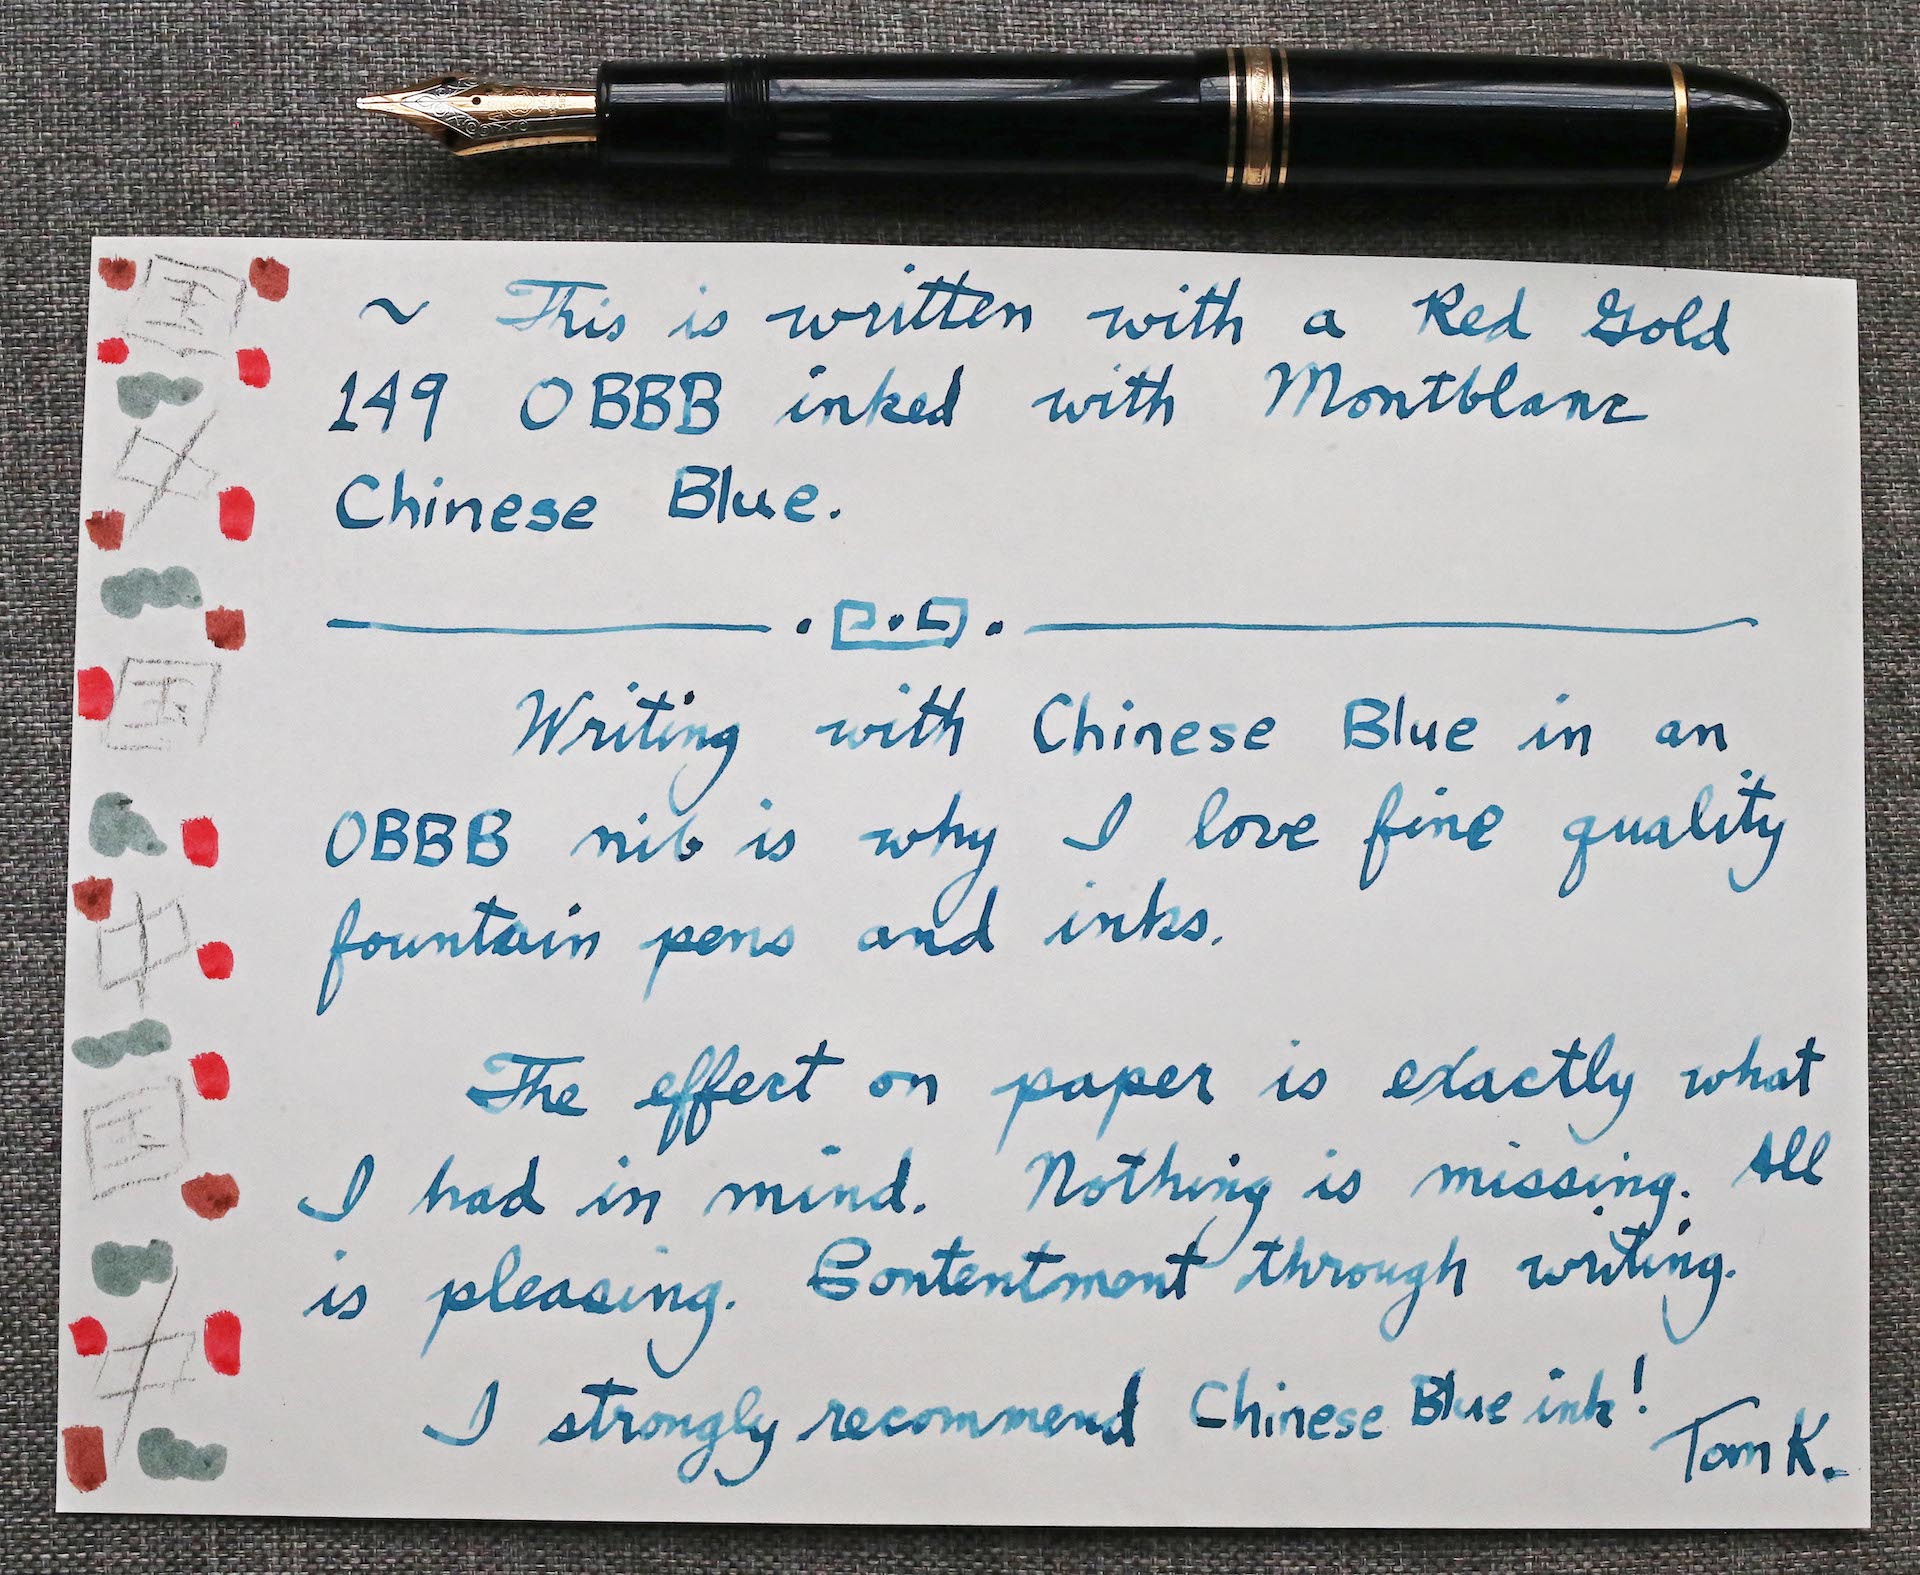 ~ This is written with a Red Gold
149 OBBB inked with Montblanc
Chinese Blue.
Writing with Chinese Blue in an
OBBB nib is why I love fine quality
fountain pens and inks.
The effect on paper is exactly what
I had in mind. Nothing is missing. All
is pleasing. Contentment through writing.
I strongly recommend Chinese Blue ink!
Tom K.